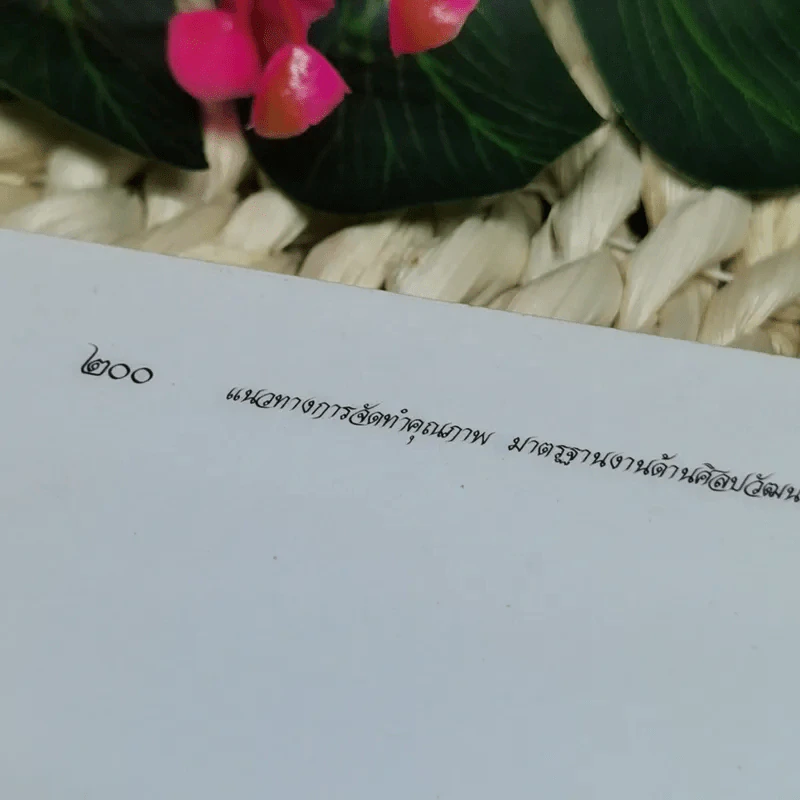 ๒๐๐ แนวทางการจัดทำคุณภาพ มาตรฐานงานด้านศิลปวัฒน